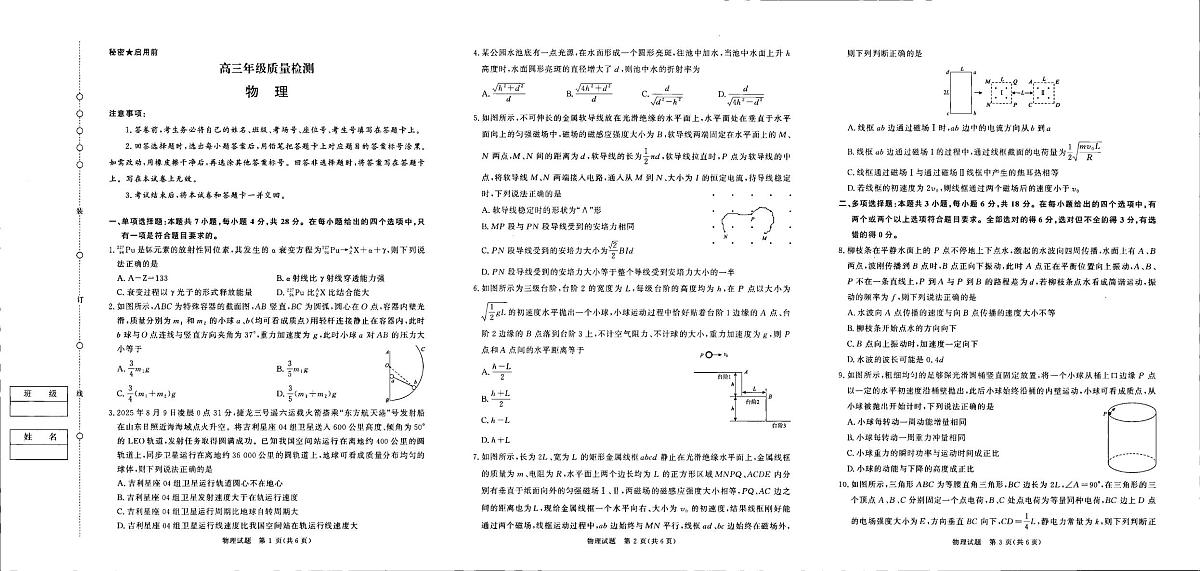 秘密★启用前
高三年级质量检测
物 理
注意事项：
1.答卷前，考生务必将自己的姓名、班级、考场号、座位号、考生号填写在答题卡上。
2.回答选择题时，选出每小题答案后，用铅笔把答题卡上对应题目的答案标号涂黑。
如需改动，用橡皮擦干净后，再选涂其他答案标号。回答非选择题时，将答案写在答题卡
上。写在本试卷上无效。
3.考试结束后，将本试卷和答题卡一并交回。
一、单项选择题：本题共7小题，每小题4分，共28分。在每小题给出的四个选项中，只
有一项是符合题目要求的。
1.²³⁷₉₄Pu是钚元素的放射性同位素，其发生的α衰变方程为²³⁷₉₄Pu→ᴬ_ZX+α+γ，则下列说
法正确的是
A. A-Z=133
B. α射线比γ射线穿透能力强
C. 衰变过程以γ光子的形式释放能量
D. ²³⁷₉₄Pu比ᴬ_ZX比结合能大
2.如图所示，ABC为特殊容器的截面图，AB竖直，BC为圆弧，圆心在O点，容器内壁光
滑，质量分别为m₁和m₂的小球a、b(均可看成质点)用轻杆连接静止在容器内，此时
b球与O点连线与竖直方向夹角为37°，重力加速度为g，此时小球a对AB的压力大
小等于
A. 3/4 m₁g
B. 3/5 m₁g
C. 3/4 (m₁+m₂)g
D. 3/5 (m₁+m₂)g
A
O
a
b
B
C
3.2025年8月9日凌晨0点31分，捷龙三号遥六运载火箭搭乘“东方航天港”号发射船
在山东日照近海海域点火升空。将吉利星座04组卫星送入600公里高度、倾角为50°
的LEO轨道，发射任务取得圆满成功。已知我国空间站运行在离地约400公里的圆
轨道上，同步卫星运行在离地约36 000公里的圆轨道上，地球可看成质量分布均匀的
球体，则下列说法正确的是
A. 吉利星座04组卫星运行轨道圆心不在地心
B. 吉利星座04组卫星发射速度大于在轨运行速度
C. 吉利星座04组卫星运行周期比地球自转周期大
D. 吉利星座04组卫星运行线速度比我国空间站在轨运行线速度大
物理试题 第1页(共6页)
班 级
姓 名
装
订
线
4.某公园水池底有一点光源，在水面形成一个圆形亮斑，往池中加水，当池中水面上升h
高度时，水面圆形亮斑的直径增大了d，则池中水的折射率为
A. √(h²+d²)/d
B. √(4h²+d²)/d
C. d/√(d²-h²)
D. d/√(4h²-d²)
5.如图所示，不可伸长的金属软导线放在光滑绝缘的水平面上，水平面处在垂直于水平
面向上的匀强磁场中，磁场的磁感应强度大小为B，软导线两端固定在水平面上的M、
N两点，M、N间的距离为d，软导线的长为1/2 πd，软导线拉直时，P点为软导线的中
点，将软导线M、N两端接入电路，通入从M到N、大小为I的恒定电流，待导线稳定
时，下列说法正确的是
A. 软导线稳定时的形状为“Λ”形
B. MP段与PN段导线受到的安培力相同
C. PN段导线受到的安培力大小为√2/2 BId
D. PN段导线受到的安培力大小等于整个导线受到安培力大小的一半
P
N
M
6.如图所示为三级台阶，台阶2的宽度为L，每级台阶的高度均为h，在P点以大小为
√(1/2 gL)的初速度水平抛出一个小球，小球运动过程中恰好贴着台阶1边缘的A点、台
阶2边缘的B点落到台阶3上，不计空气阻力、不计球的大小，重力加速度为g，则P
点和A点间的水平距离等于
A. (h-L)/2
B. (h+L)/2
C. h-L
D. h+L
P v₀
台阶1 A
h
L
台阶2 B
h
台阶3
7.如图所示，长为2L、宽为L的矩形金属线框abcd静止在光滑绝缘水平面上，金属线框
的质量为m、电阻为R，水平面上两个边长均为L的正方形区域MNPQ、ACDE内分
别有垂直于纸面向外的匀强磁场Ⅰ、Ⅱ，两磁场的磁感应强度大小相等，PQ、AC边之
间的距离也为L，现给金属线框一个水平向右、大小为v₀的初速度，结果线框刚好能
通过两个磁场，线框运动过程中，ab边始终与MN平行，线框ad、bc边始终在磁场外，
物理试题 第2页(共6页)
则下列判断正确的是
d L a
2L
c b
M Q A E
L
N P C D
A. 线框ab边通过磁场Ⅰ时，ab边中的电流方向从b到a
B. 线框ab边通过磁场Ⅰ的过程中，通过线框截面的电荷量为1/2 √(mv₀L/R)
C. 线框通过磁场Ⅰ与通过磁场Ⅱ线框中产生的焦耳热相等
D. 若线框的初速度为2v₀，则线框通过两个磁场后的速度小于v₀
二、多项选择题：本题共3小题，每小题6分，共18分。在每小题给出的四个选项中，有
两个或两个以上选项符合题目要求。全部选对的得6分，选对但不全的得3分，有选
错的得0分。
8.柳枝条在平静水面上的P点不停地上下点水，激起的水波向四周传播，水面上有A、B
两点，波刚传播到B点时，B点正向下振动，此时A点正在平衡位置向上振动，A、B、
P不在一条直线上，P到A与P到B的路程差为d，若柳枝条点水看成简谐运动，振
动的频率为f，则下列说法正确的是
A. 水波向A点传播的速度与向B点传播的速度大小不等
B. 柳枝条开始点水的方向向下
C. B点向上振动时，加速度一定向下
D. 水波的波长可能是0.4d
9.如图所示，粗细均匀的足够深光滑圆桶竖直固定放置，将一个小球从桶上口边缘P点
以一定的水平初速度沿桶壁抛出，此后小球始终沿桶的内壁运动，小球可看成质点，从
小球被抛出开始计时，下列说法正确的是
A. 小球每转动一周动能增量相同
B. 小球每转动一周重力冲量相同
C. 小球重力的瞬时功率与运动时间成正比
D. 小球的动能与下降的高度成正比
P
10.如图所示，三角形ABC为等腰直角三角形，BC边长为2L，∠A=90°，在三角形的三
个顶点A、B、C分别固定一个点电荷，B、C处点电荷为等量同种电荷，BC边上D点
的电场强度大小为E，方向垂直BC向下，CD=1/4 L，静电力常量为k，则下列判断正
物理试题 第3页(共6页)